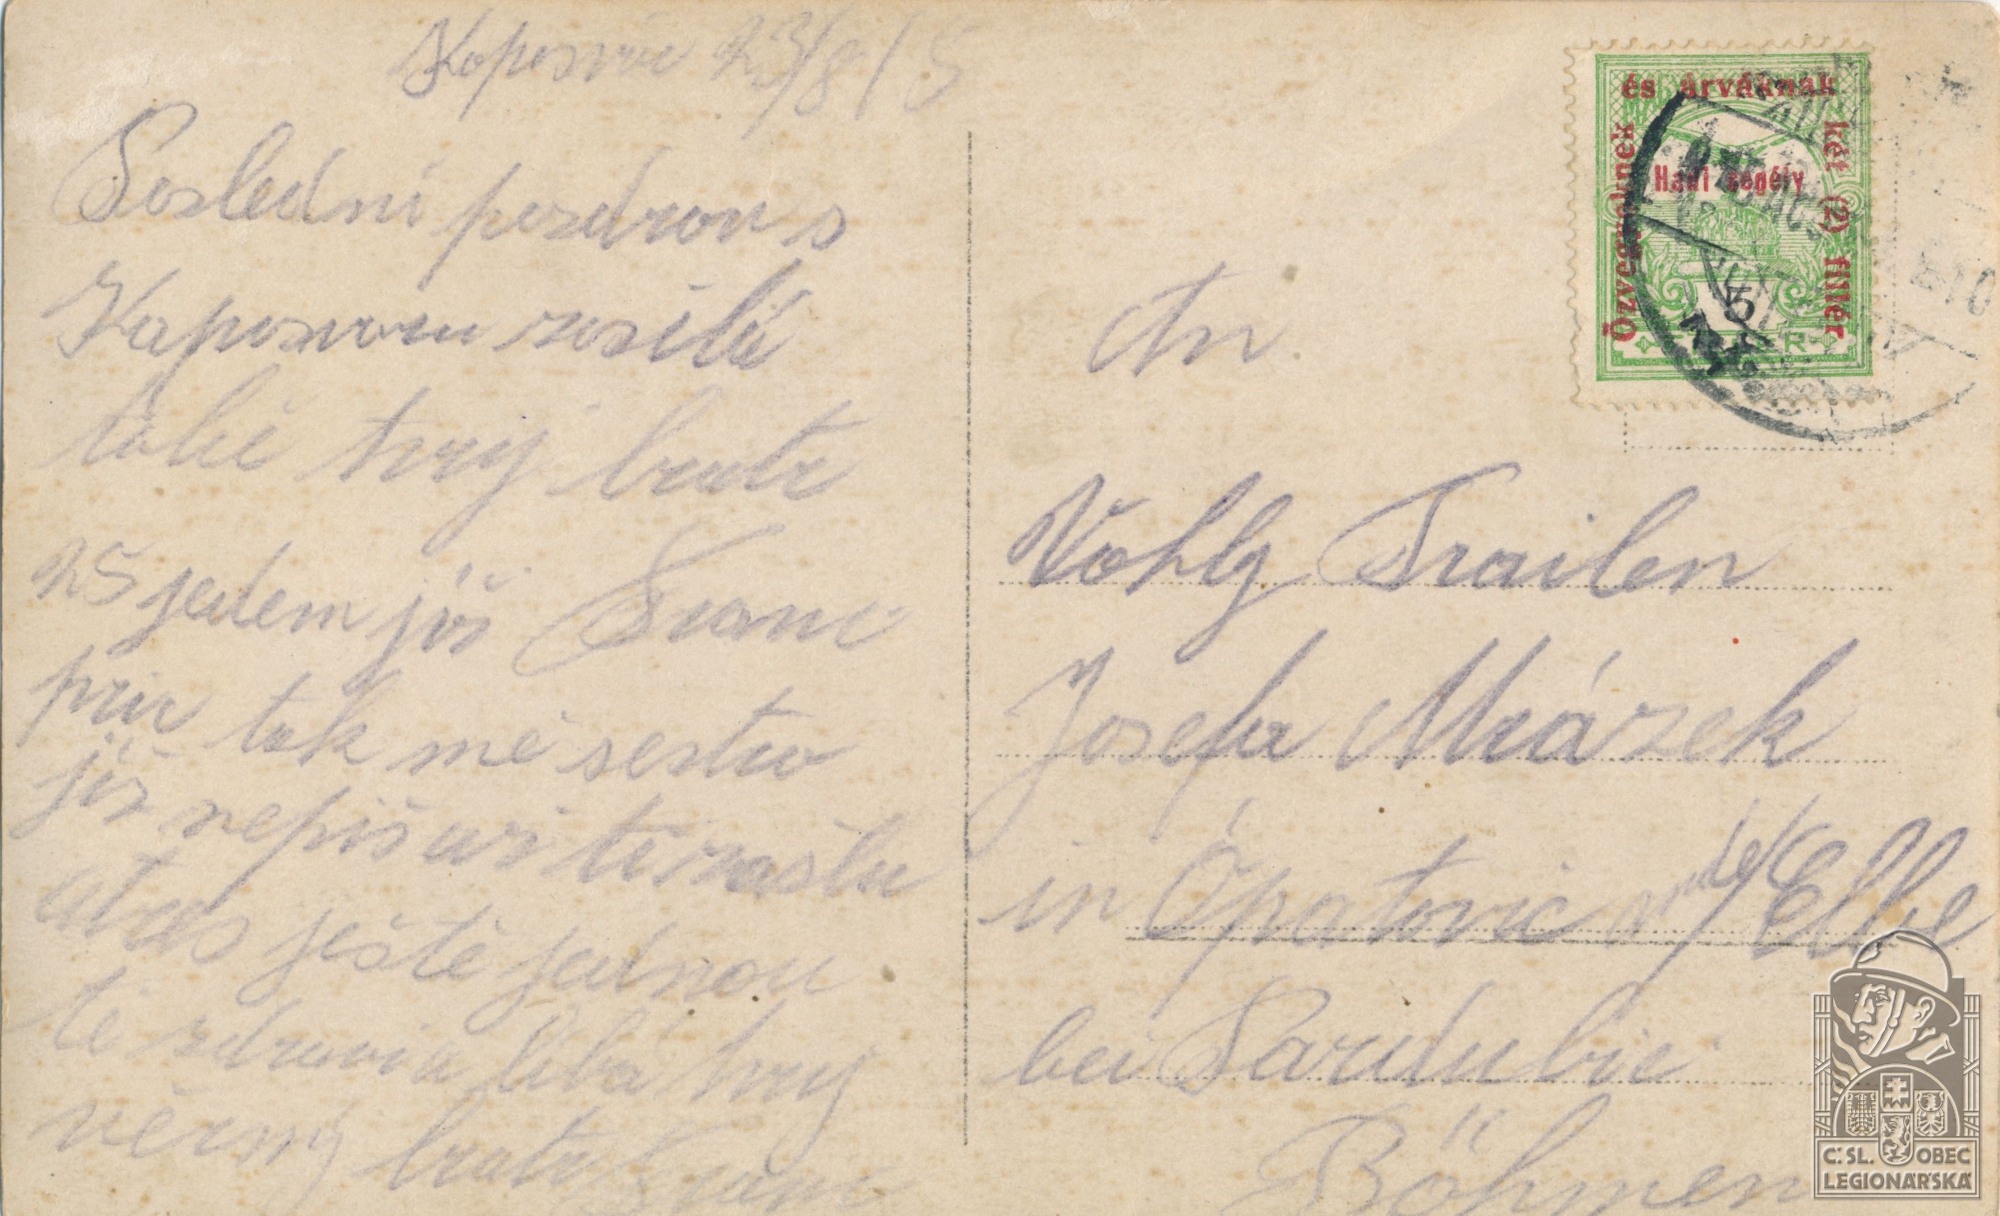 23/8/15
Poslední pozdrav s
Kaposvaru zasílá
také tvůj bratr
25 jedem již Franc
tak mě sestro
již nepiš až ti zašlu
atres ještě jednou
tě zdraví a líbá tvůj
věrný bratr Franc
An
Vohlg Frailen
Josefa Mrázek
in Opatovic a/d Elbe
bei Pardubic
Böhmen
Özvegyeknek és árváknak két (2) fillér
Hadi segély
Č.SL. OBEC
LEGIONÁŘSKÁ